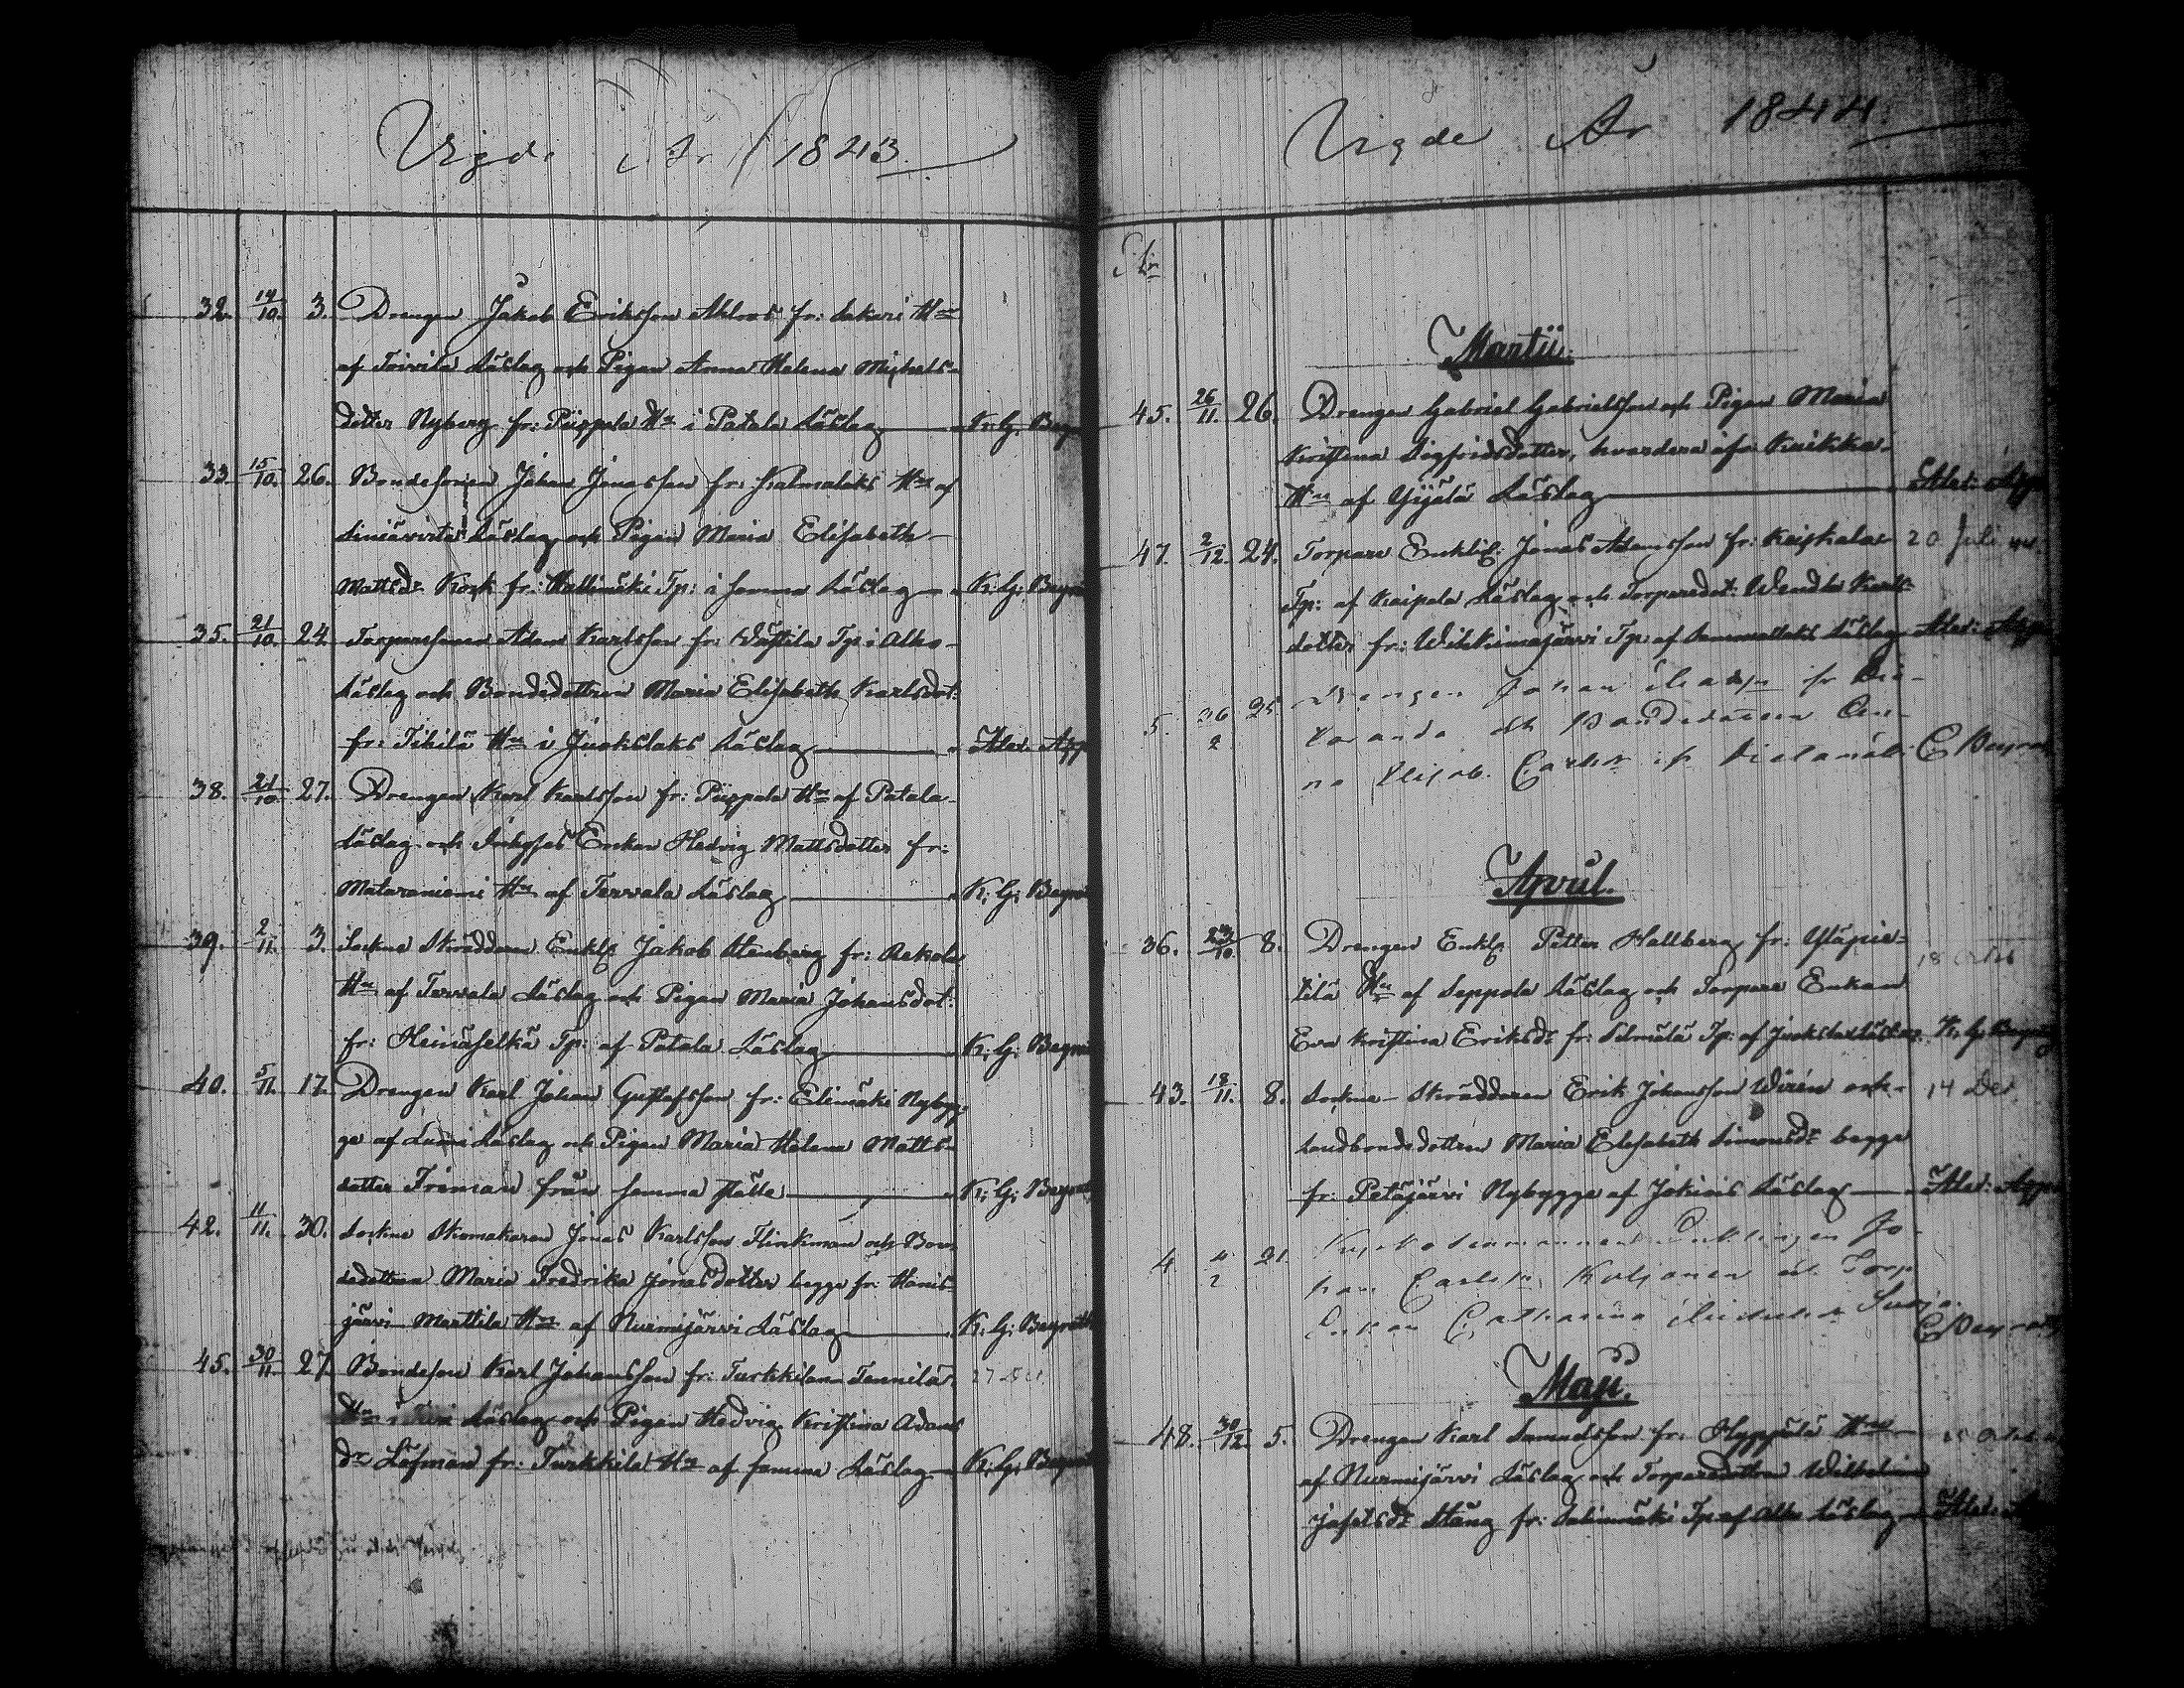 Vigde År 1843.
32. 14/10. 3. Drengen Jakob Eriksson Ahlroos fr: Sakari Hn
af Toivila Läslag och Pigan Anna Helena Michels-
dotter Nyberg fr: Piippola Hn i Patala Läslag K: G: Bey
33. 15/10. 26. Bondesonen Johan Jonasson fr: Kalmalaks Hn af
Läslag och Pigan Maria Elisabeth
Mattsdr Kock fr: Kallimäki Tp: i samma Läslag K: G: Beyr
35. 21/10. 24. Torparesonen Adam Karlsson fr: Tp: i Alho
Läslag och Bondedottren Maria Elisabeth Karlsdot:
fr: Tihilä Hn i Juokslaks Läslag Alex: App
38. 21/10. 27. Drengen Karl Karlsson fr: Piippola Hn af Patala
Läslag och Enkan Hedvig Mattsdotter fr:
Mataraniemi Hn af Tervala Läslag K: G: Beyr
39. 2/11. 3. Sockne Skräddaren Enkl: Jakob Stenberg fr: Rekola
Hn af Tervala Läslag och Pigan Maria Johansdot:
fr: Heinäselkä Tp: af Patala Läslag K: G: Beyr
40. 5/11. 17. Drengen Karl Johan Gustafsson fr: Elimäki Nybyg-
ge af Läslag och Pigan Maria Helena Matts-
dotter Friman från samma ställe K: G: Beyr
42. 11/11. 30. Sockne Skomakaren Jonas Karlsson Flinkman och Bon-
dedottren Maria Fredrika Jonasdotter begge fr: Hanis-
järvi Marttila Hn af Nurmijärvi Läslag K: G: Beyrath
45. 30/11. 27. Bondeson Karl Johansson fr: Turkkilan Tennilä 27 Dec
Hn i Läslag och Pigan Hedvig Kristina Adams
dr Löfman fr: Turkkila Hn af samma Läslag K: G: Beyr
Vigde År 1844.
Martii.
45. 26/11. 26. Drengen Gabriel Gabrielsson och Pigan Maria
Kristina Sigfridsdotter, hvardera ifr: Kaikka
Hn af Yijälä Läslag Alex: App
47. 2/12. 24. Torpare Enkl: Jonas Adamsson fr: Keiskala 20 Juli
Tp: af Kaipola Läslag och Torparedot: Wendla Karls-
dotter fr: Tp: af Läslag Alex: App
5. 26/2 25. Drengen Johan fr
och Bondedottren An-
na Elisab. Carlsdr ifr C Beyrath
April.
36. 23/10. 8. Drengen Enkl: Petter Hallberg fr: Yläpie- 18 Octob
tilä Hn af Seppola Läslag och Torpare Enkan
Eva Kristina Eriksdr fr: Silmälä Tp: af Juokslaks Läslag K: G: Beyr
43. 18/11. 8. Sockne Skräddaren Erik Johansson Wirén och 14 Dec.
Landbondedottren Maria Elisabeth Simonsdr begge
fr: Petäjärvi Nybygge af Jokiois Läslag Alex: App
4 4/2 21. Enklingen Jo-
han Carlsson och Torp
Enkan Catharina C Beyrath
Maji.
48. 30/12. 5. Drengen Karl fr: Hyppälä Hn Octob
af Nurmijärvi Läslag och Torparedottren Wilhelmina
Jafetsdr Stång fr: Salimäki Tp: af Alho Läslag Alex: